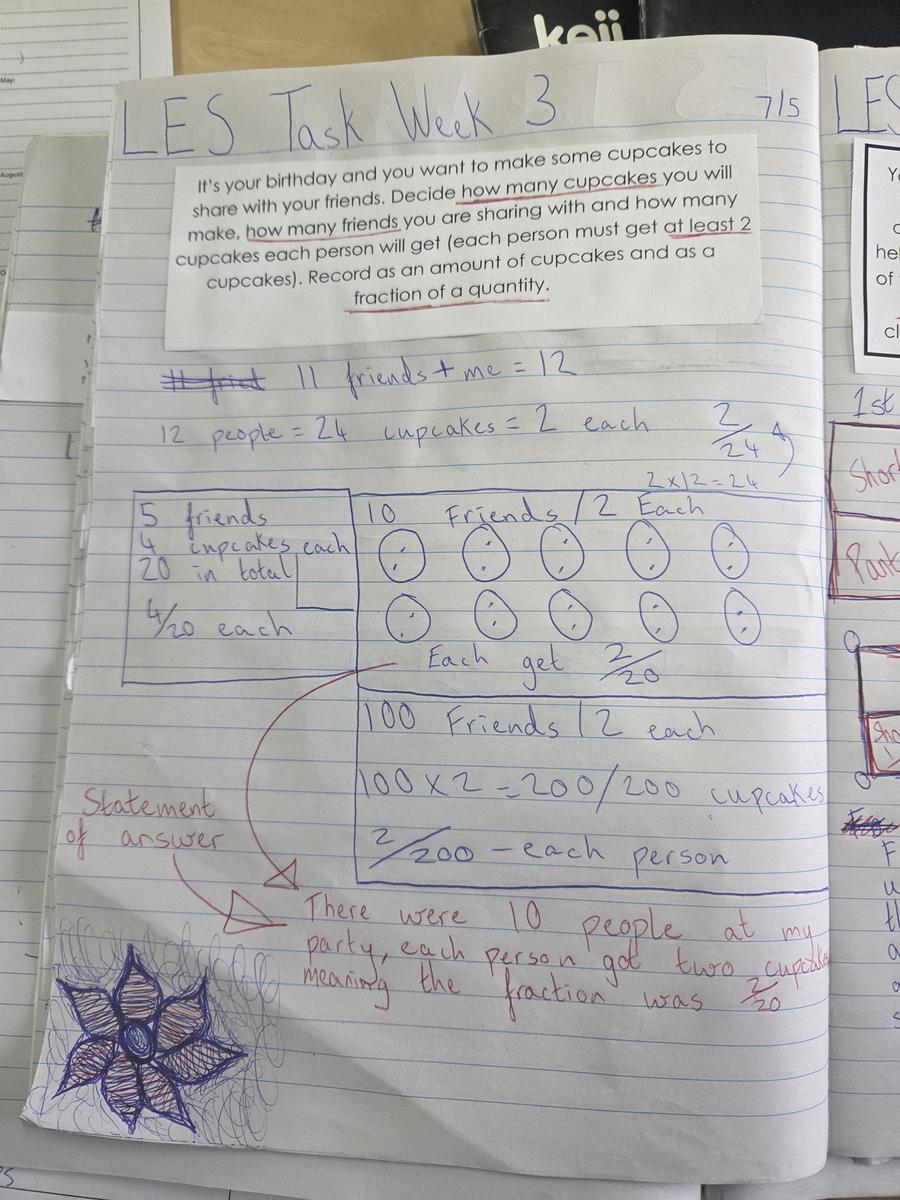 keji
May:
August
LES Task Week 3
7/5
It's your birthday and you want to make some cupcakes to
share with your friends. Decide how many cupcakes you will
make, how many friends you are sharing with and how many
cupcakes each person will get (each person must get at least 2
cupcakes). Record as an amount of cupcakes and as a
fraction of a quantity.
11 friends + me = 12
12 people = 24 cupcakes = 2 each 2/24
2x12=24
5 friends
4 cupcakes each
20 in total
4/20 each
10 Friends / 2 Each
Each get 2/20
100 Friends / 2 each
100 x 2 = 200/200 cupcakes
2/200 - each person
Statement
of answer
There were 10 people at my
party, each person got two cupcakes
meaning the fraction was 2/20
LES
1st